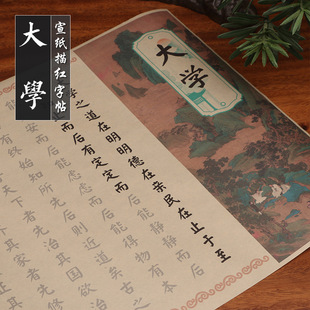 大學
宣紙描红字帖
大学
学之道在明明德在亲民在止于至
而后有定定而后能静静而后
安而后能虑虑而后能得物有本
有终始知所先后则近道矣古之
天下者先治其国欲治
其家者先修